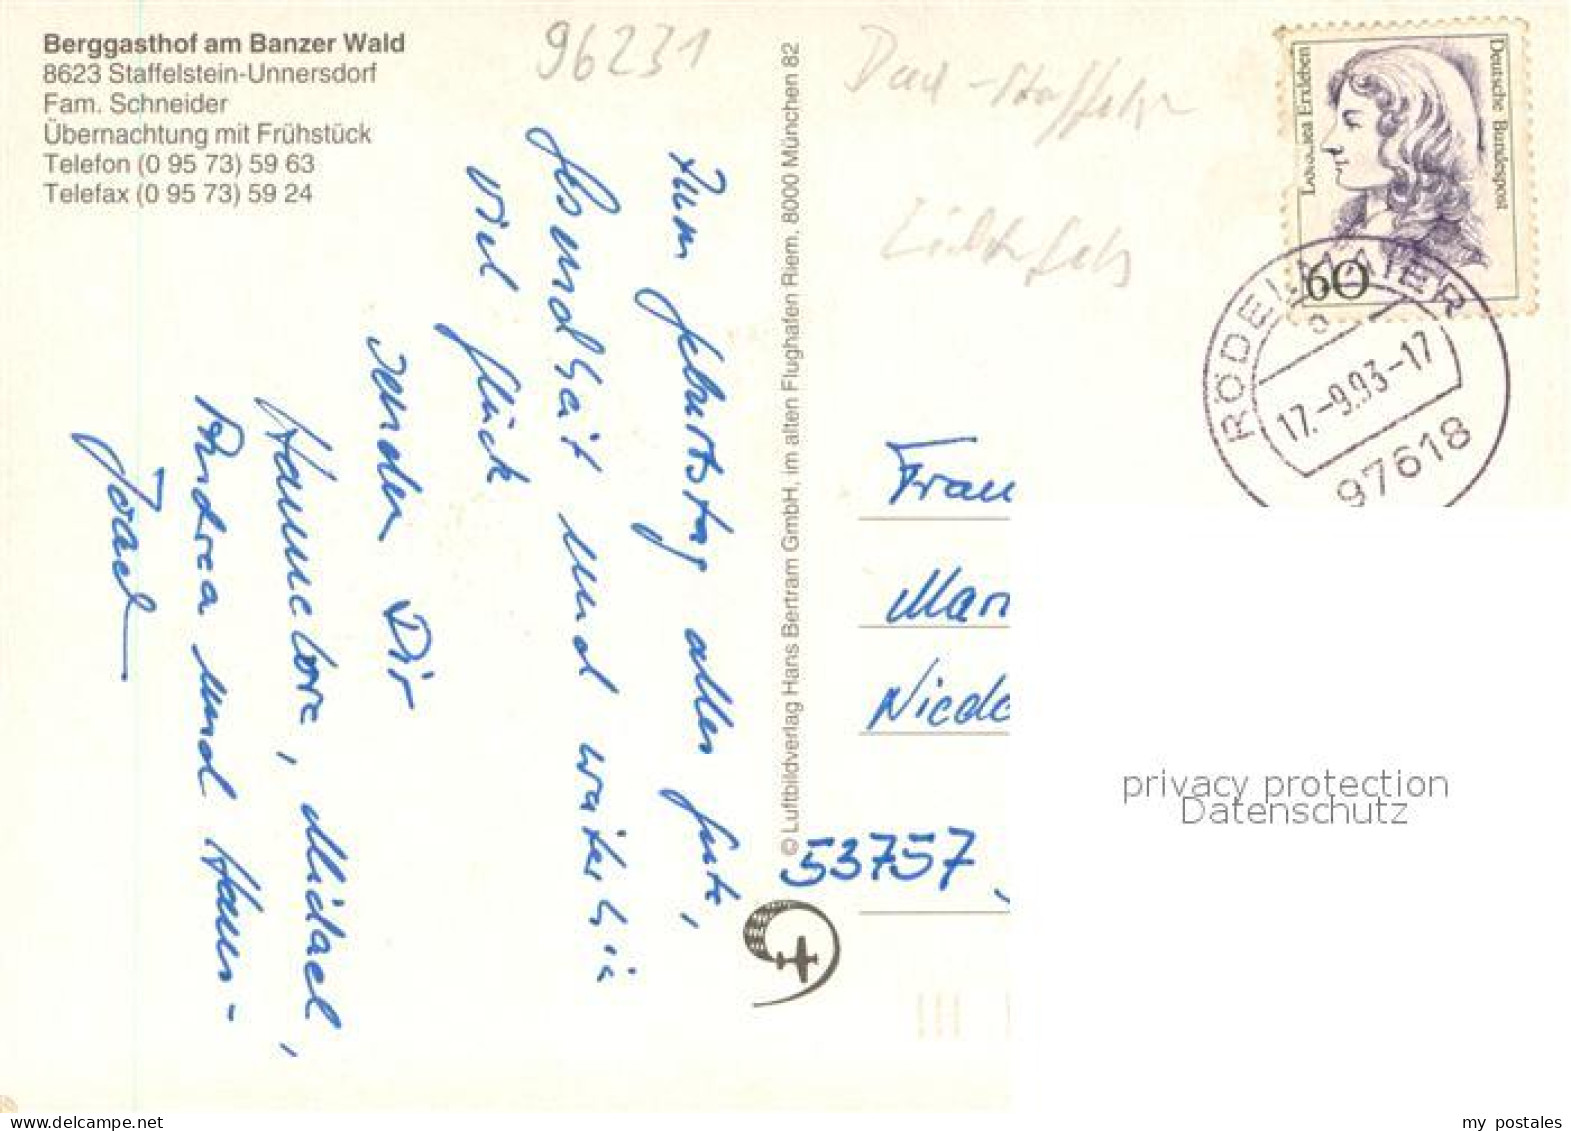 Berggasthof am Banzer Wald
8623 Staffelstein-Unnersdorf
Fam. Schneider
Übernachtung mit Frühstück
Telefon (0 95 73) 59 63
Telefax (0 95 73) 59 24
96231
Zum Geburtstag alles Gute,
Gesundheit und weiterhin
viel Glück
senden Dir
Hannelore, Michael,
Andrea und Hans-
Josef
© Luftbildverlag Hans Bertram GmbH, im alten Flughafen Riem, 8000 München 82
Bad-Staffelstein
Lichtenfels
Dorothea Erxleben
Deutsche Bundespost
60
RÖDELMAIER
a
17.-9.93-17
97618
Frau
Mari
Niede
53757,
privacy protection
Datenschutz
my postales